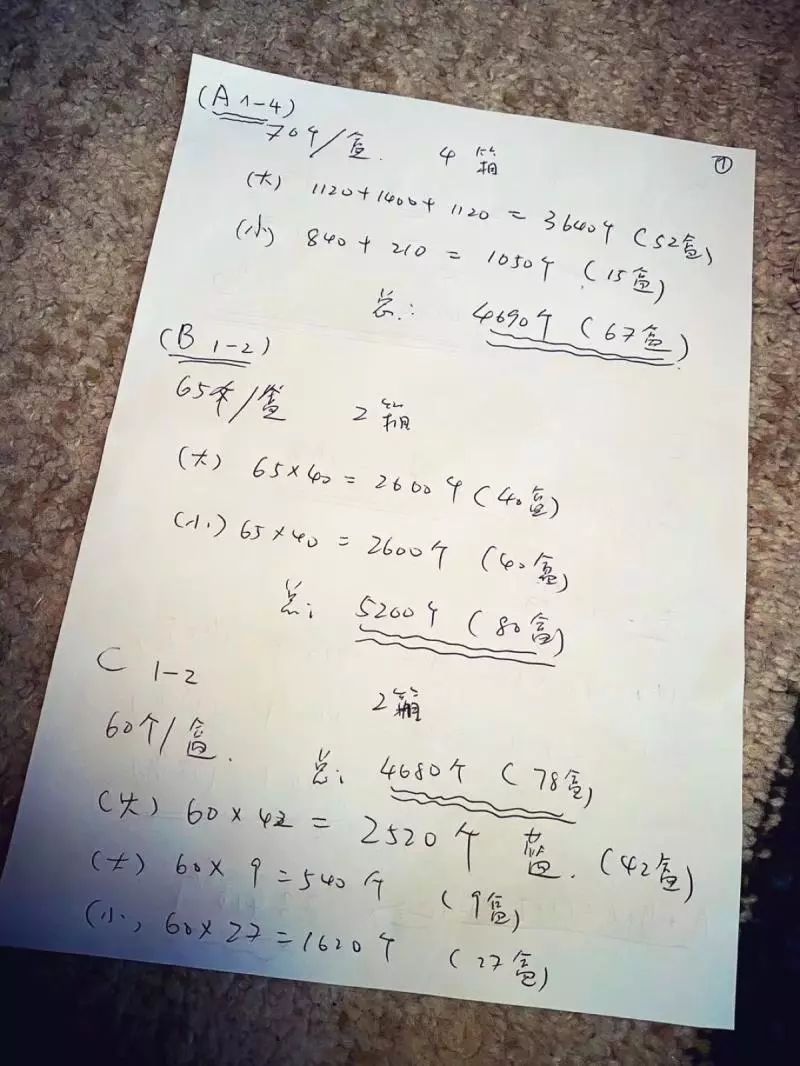 (A 1-4)
70个/盒. 4箱 ①
(大) 1120+1400+1120 = 3640个 (52盒)
(小) 840 + 210 = 1050个 (15盒)
总: 4690个 (67盒)
(B 1-2)
65个/盒 2箱
(大) 65×40 = 2600个 (40盒)
(小) 65×40 = 2600个 (40盒)
总: 5200个 (80盒)
C 1-2
2箱
60个/盒. 总: 4680个 (78盒)
(大) 60 × 42 = 2520个 蓝. (42盒)
(大) 60 × 9 = 540个 (9盒)
(小) 60 × 27 = 1620个 (27盒)